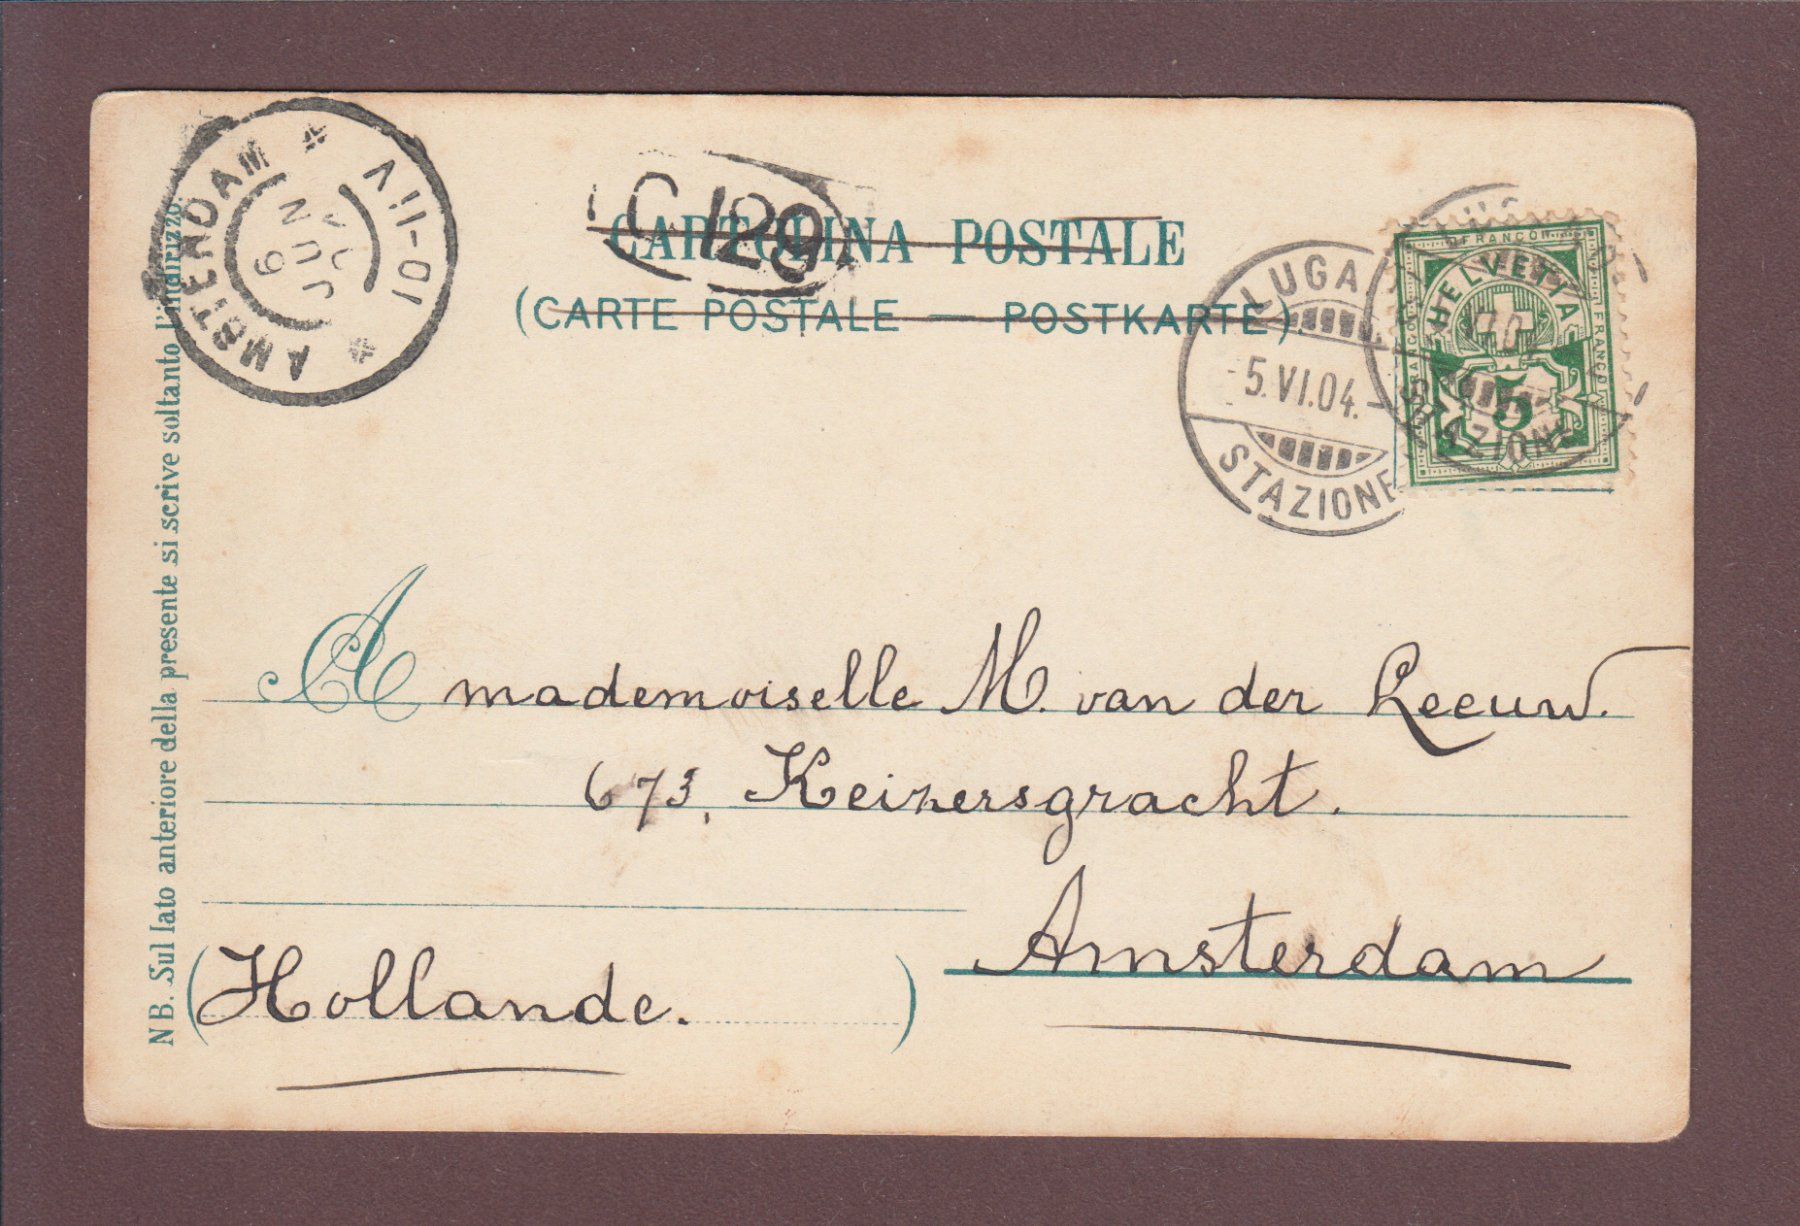 CARTOLINA POSTALE
(CARTE POSTALE — POSTKARTE)
C 129
AMSTERDAM
6 JUN
10-11V
LUGA
5.VI.04.
STAZIONE
STAZIONE
FRANCO
HELVETIA
FRANCO
5
NB. Sul lato anteriore della presente si scrive soltanto l'indirizzo.
A mademoiselle M. van der Leeuw.
673, Keizersgracht.
Amsterdam
(Hollande.)